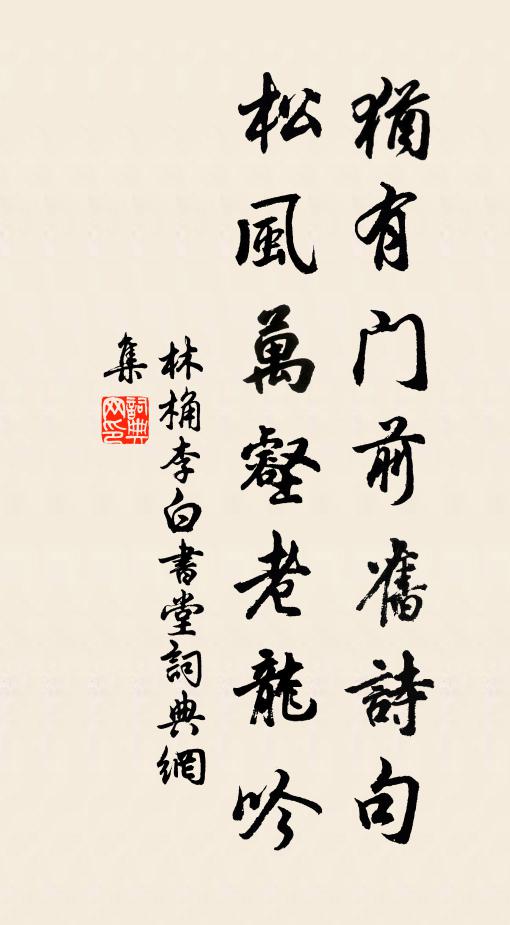 猶有門前舊詩句
松風萬壑老龍吟
林桷李白書堂詞典網
集
詞典
网印